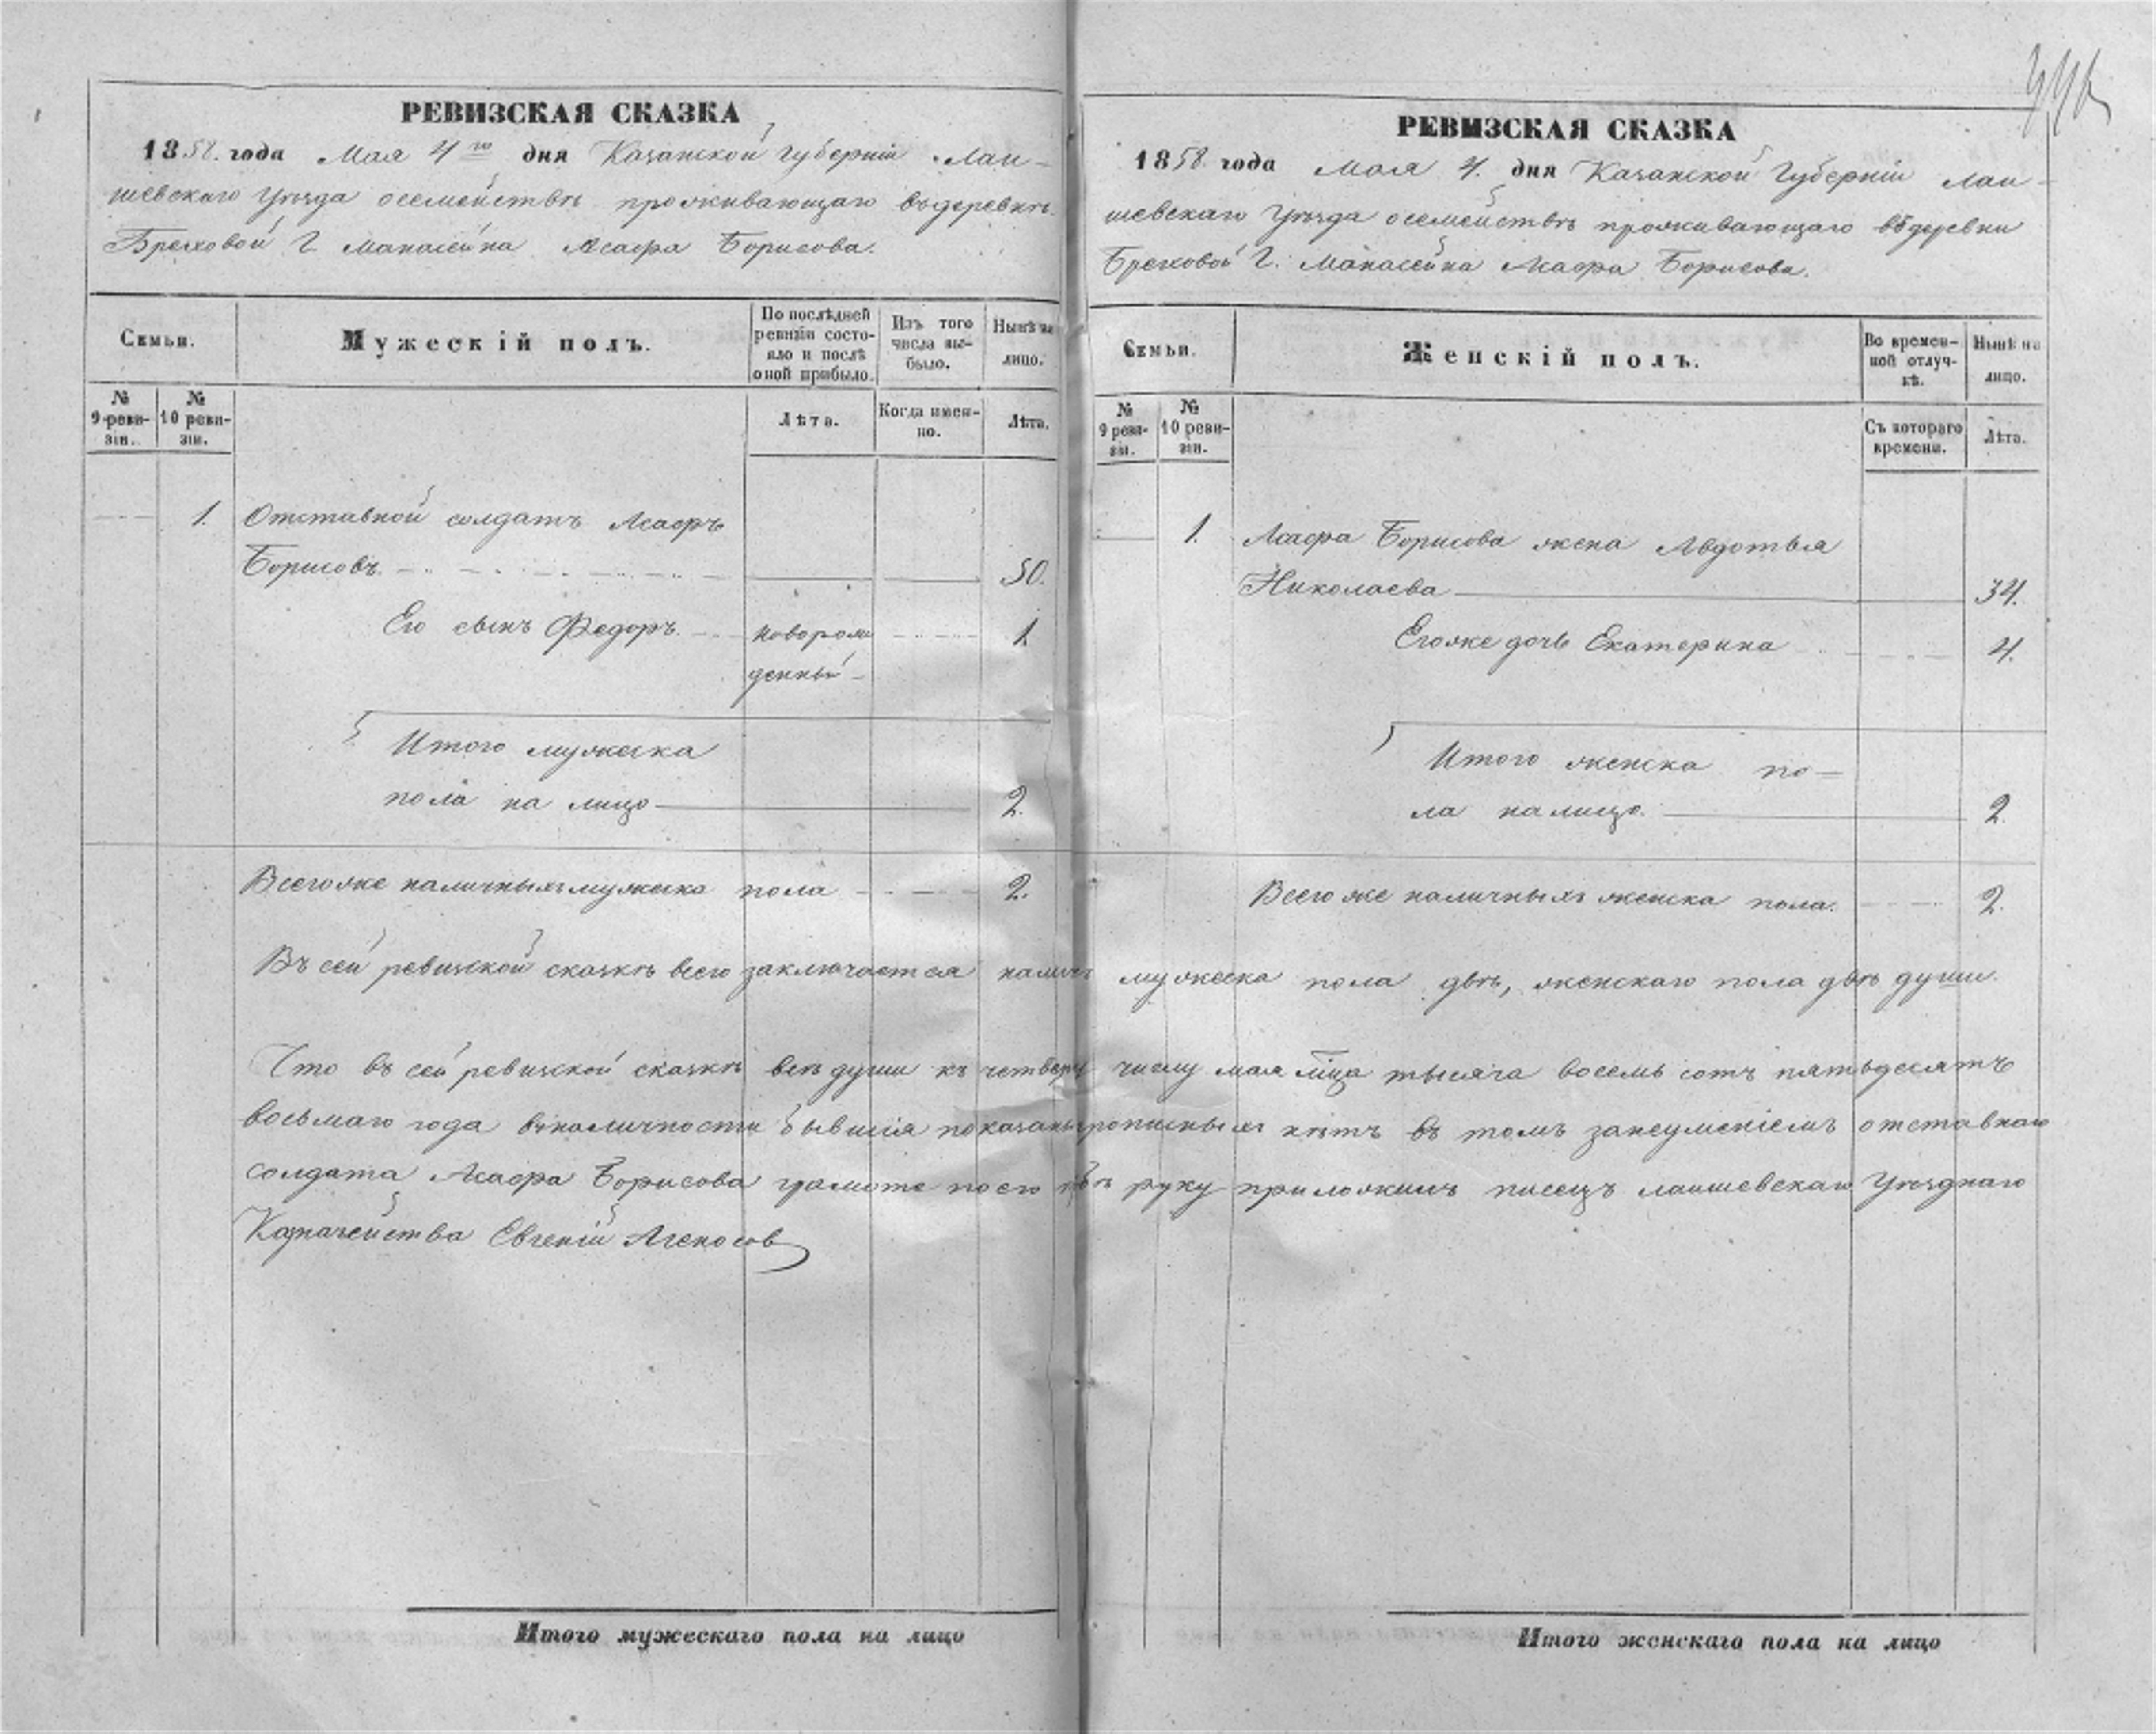 РЕВИЗСКАЯ СКАЗКА
1858. года Мая 4го дня Казанской Губерніи Лаи-
шевскаго Уѣзда о семействѣ проживающаго въ деревнѣ
Бреховой Г. Манасеина Асафа Борисова.
Семьи.
Мужескій полъ.
По послѣдней
ревизіи состо-
яло и послѣ
оной прибыло.
Изъ того
числа вы-
было.
Нынѣ на
лицо.
№
9 реви-
зіи.
№
10 реви-
зіи.
Лѣта.
Когда имен-
но.
Лѣта.
1. Отставной солдатъ Асафъ
Борисовъ. 50.
Его сынъ Федоръ. новорож 1.
денный
Итого мужеска
пола на лицо 2.
Всего же наличныхъ мужеска пола 2.
РЕВИЗСКАЯ СКАЗКА
1858 года Мая 4. дня Казанской Губерніи Лаи-
шевскаго Уѣзда о семействѣ проживающаго въ деревни
Бреховой Г. Манасеина Асафа Борисова.
Семьи.
Женскій полъ.
Во времен-
ной отлуч-
кѣ.
Нынѣ на
лицо.
№
9 реви-
зіи.
№
10 реви-
зіи.
Съ котораго
времени.
Лѣта.
1. Асафа Борисова жена Авдотья
Николаева 34.
Его же дочь Екатерина 4.
Итого женска по-
ла на лицо. 2
Всего же наличныхъ женска пола. 2.
Въ сей ревизской сказкѣ всего заключается налич мужеска пола двѣ, женскаго пола двѣ души.
Что въ сей ревизской сказкѣ всѣ души къ четверту числу мая мца тысяча восемь сотъ пятьдесятъ
восьмаго года въ наличности бывшія показаны прописныхъ нѣтъ въ томъ за неуменіемъ отставнаго
солдата Асафа Борисова грамоте по его руку приложилъ писецъ Лаишевскаго Уѣзднаго
Казначейства Евгеній
Итого мужескаго пола на лицо
Итого женскаго пола на лицо